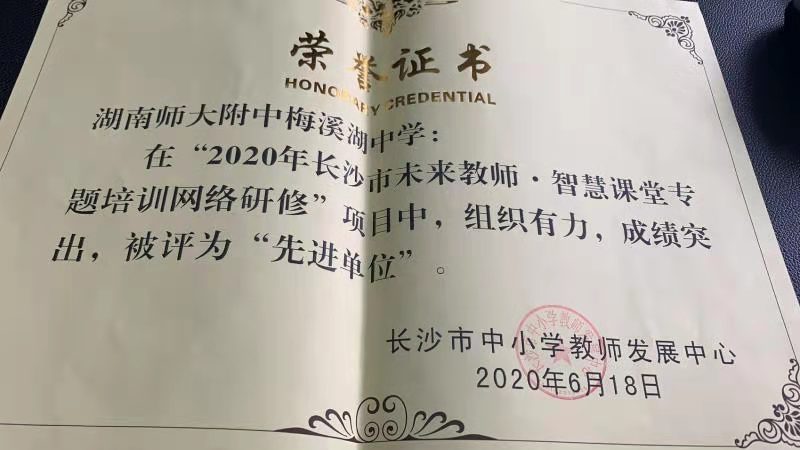 荣誉证书
HONORARY CREDENTIAL
湖南师大附中梅溪湖中学：
在“2020年长沙市未来教师·智慧课堂专
题培训网络研修”项目中，组织有力，成绩突
出，被评为“先进单位”。
长沙市中小学教师发展中心
2020年6月18日